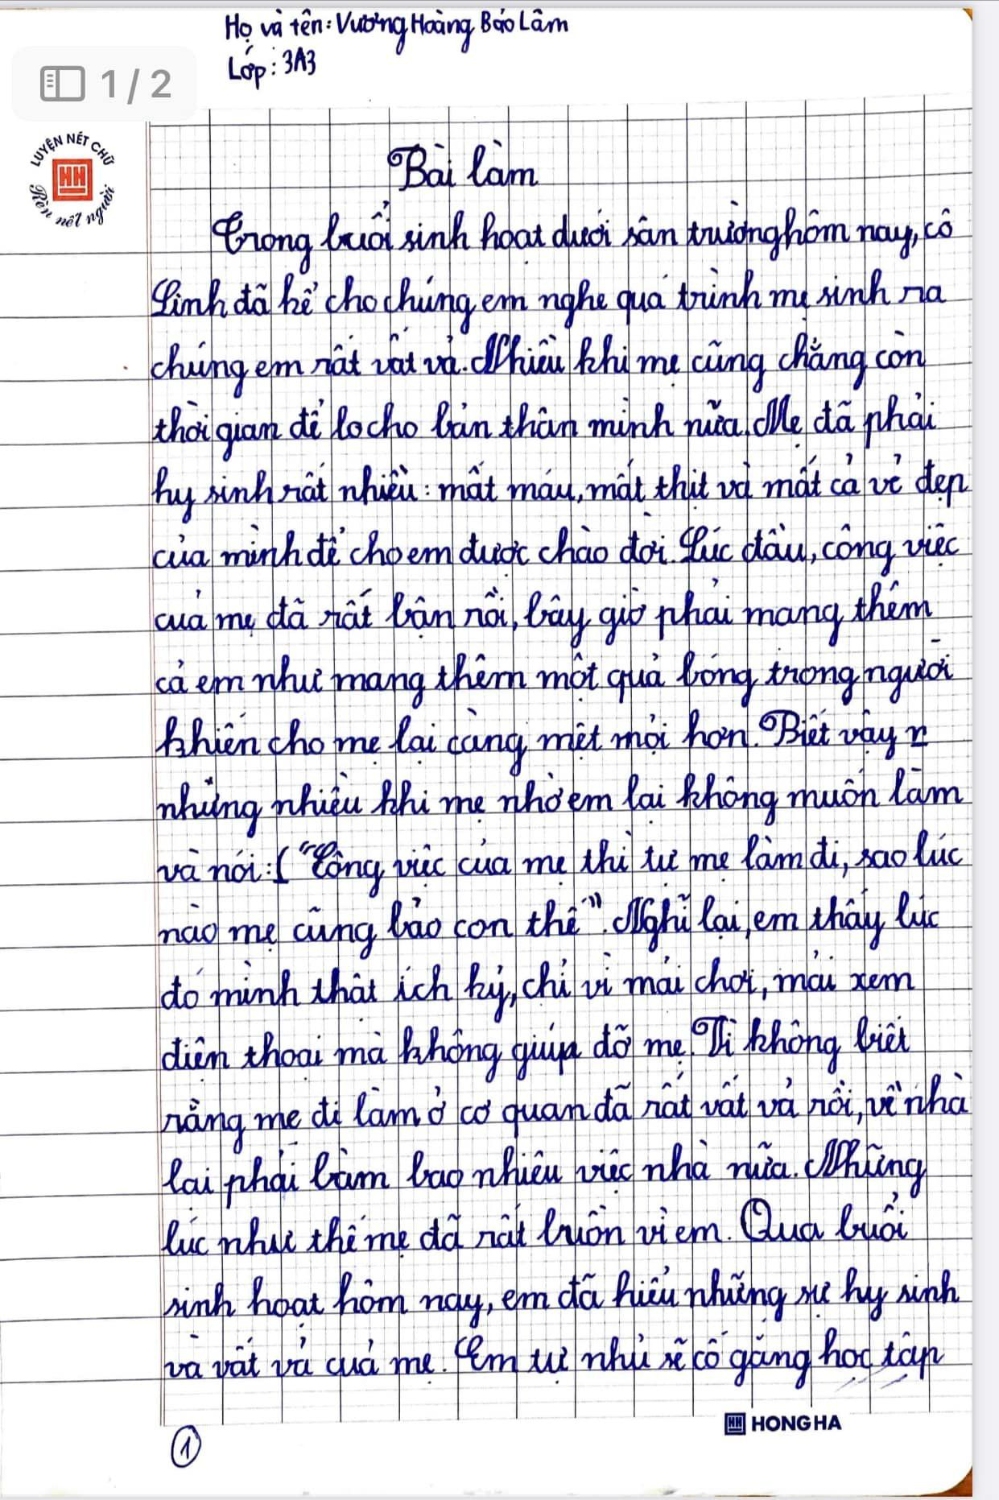 Họ và tên: Vương Hoàng Bảo Lâm
Lớp: 3A3
1 / 2
LUYỆN NÉT CHỮ
HH
Rèn nết người
Bài làm
Trong buổi sinh hoạt dưới sân trường hôm nay, cô
Linh đã kể cho chúng em nghe quá trình mẹ sinh ra
chúng em rất vất vả. Nhiều khi mẹ cũng chẳng còn
thời gian để lo cho bản thân mình nữa. Mẹ đã phải
hy sinh rất nhiều: mất máu, mất thịt và mất cả vẻ đẹp
của mình để cho em được chào đời. Lúc đầu, công việc
của mẹ đã rất bận rồi, bây giờ phải mang thêm
cả em như mang thêm một quả bóng trong người
khiến cho mẹ lại càng mệt mỏi hơn. Biết vậy
nhưng nhiều khi mẹ nhờ em lại không muốn làm
và nói: "Công việc của mẹ thì tự mẹ làm đi, sao lúc
nào mẹ cũng bảo con thế". Nghĩ lại, em thấy lúc
đó mình thật ích kỷ, chỉ vì mải chơi, mải xem
điện thoại mà không giúp đỡ mẹ. Vì không biết
rằng mẹ đi làm ở cơ quan đã rất vất vả rồi, về nhà
lại phải làm bao nhiêu việc nhà nữa. Những
lúc như thế mẹ đã rất buồn vì em. Qua buổi
sinh hoạt hôm nay, em đã hiểu những sự hy sinh
và vất vả của mẹ. Em tự nhủ sẽ cố gắng học tập
HH HONG HA
1